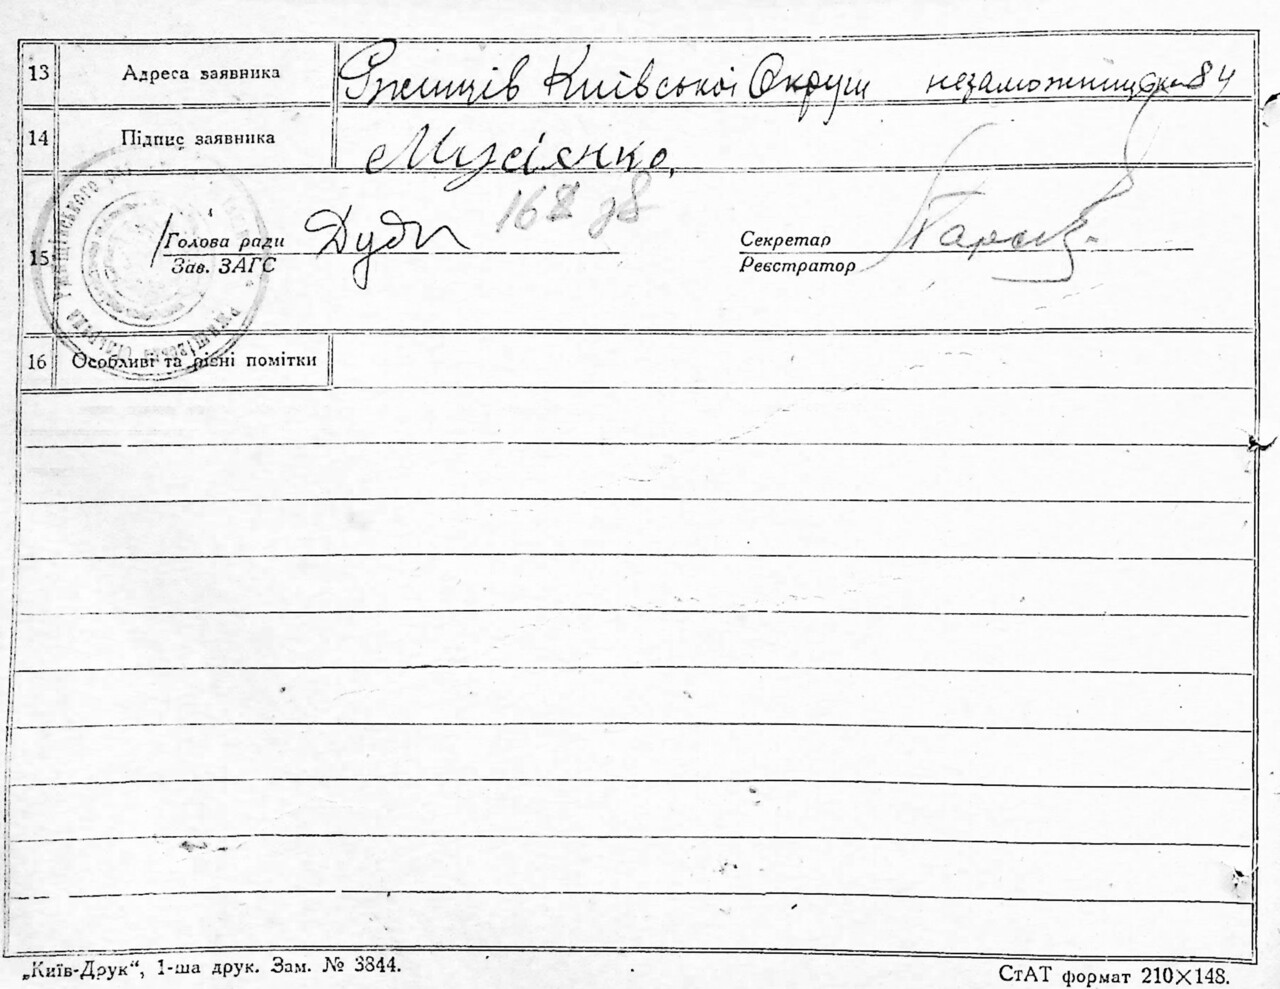 13 Адреса заявника Ржищів Київської Округи незаможницька 84
14 Підпис заявника Мусієнко,
168 д8
15 Голова ради Дуди Секретар
Зав. ЗАГС Реєстратор
16 Особливі та різні помітки
„Київ-Друк“, 1-ша друк. Зам. № 3844. СтАТ формат 210×148.